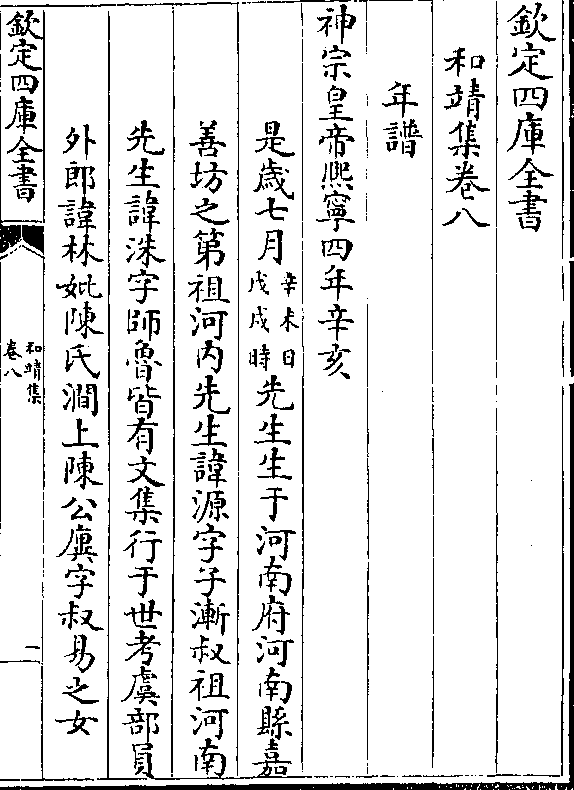 欽定四庫全書
和靖集卷八
年譜
神宗皇帝熙寧四年辛亥
是歲七月辛未日戊戌時先生生于河南府河南縣嘉
善坊之第祖河内先生諱源字子漸叔祖河南
先生諱洙字師魯皆有文集行于世考虞部員
外郎諱林妣陳氏澗上陳公廙字叔易之女
欽定四庫全書
和靖集
卷八
一